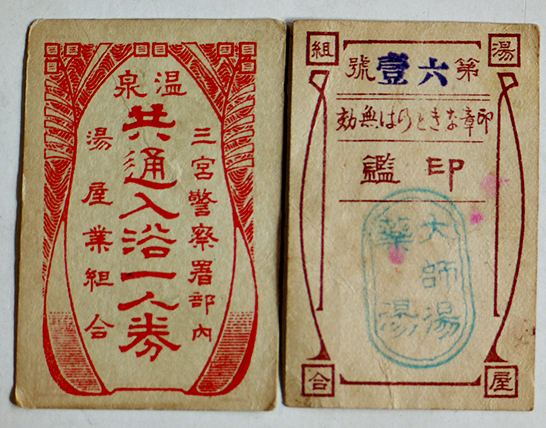 温泉
三宮警察署部內
共通入浴一人券
湯屋業組合
湯屋
組合
第六壹號
印章なきときは無効
印鑑
大師湯
藥湯